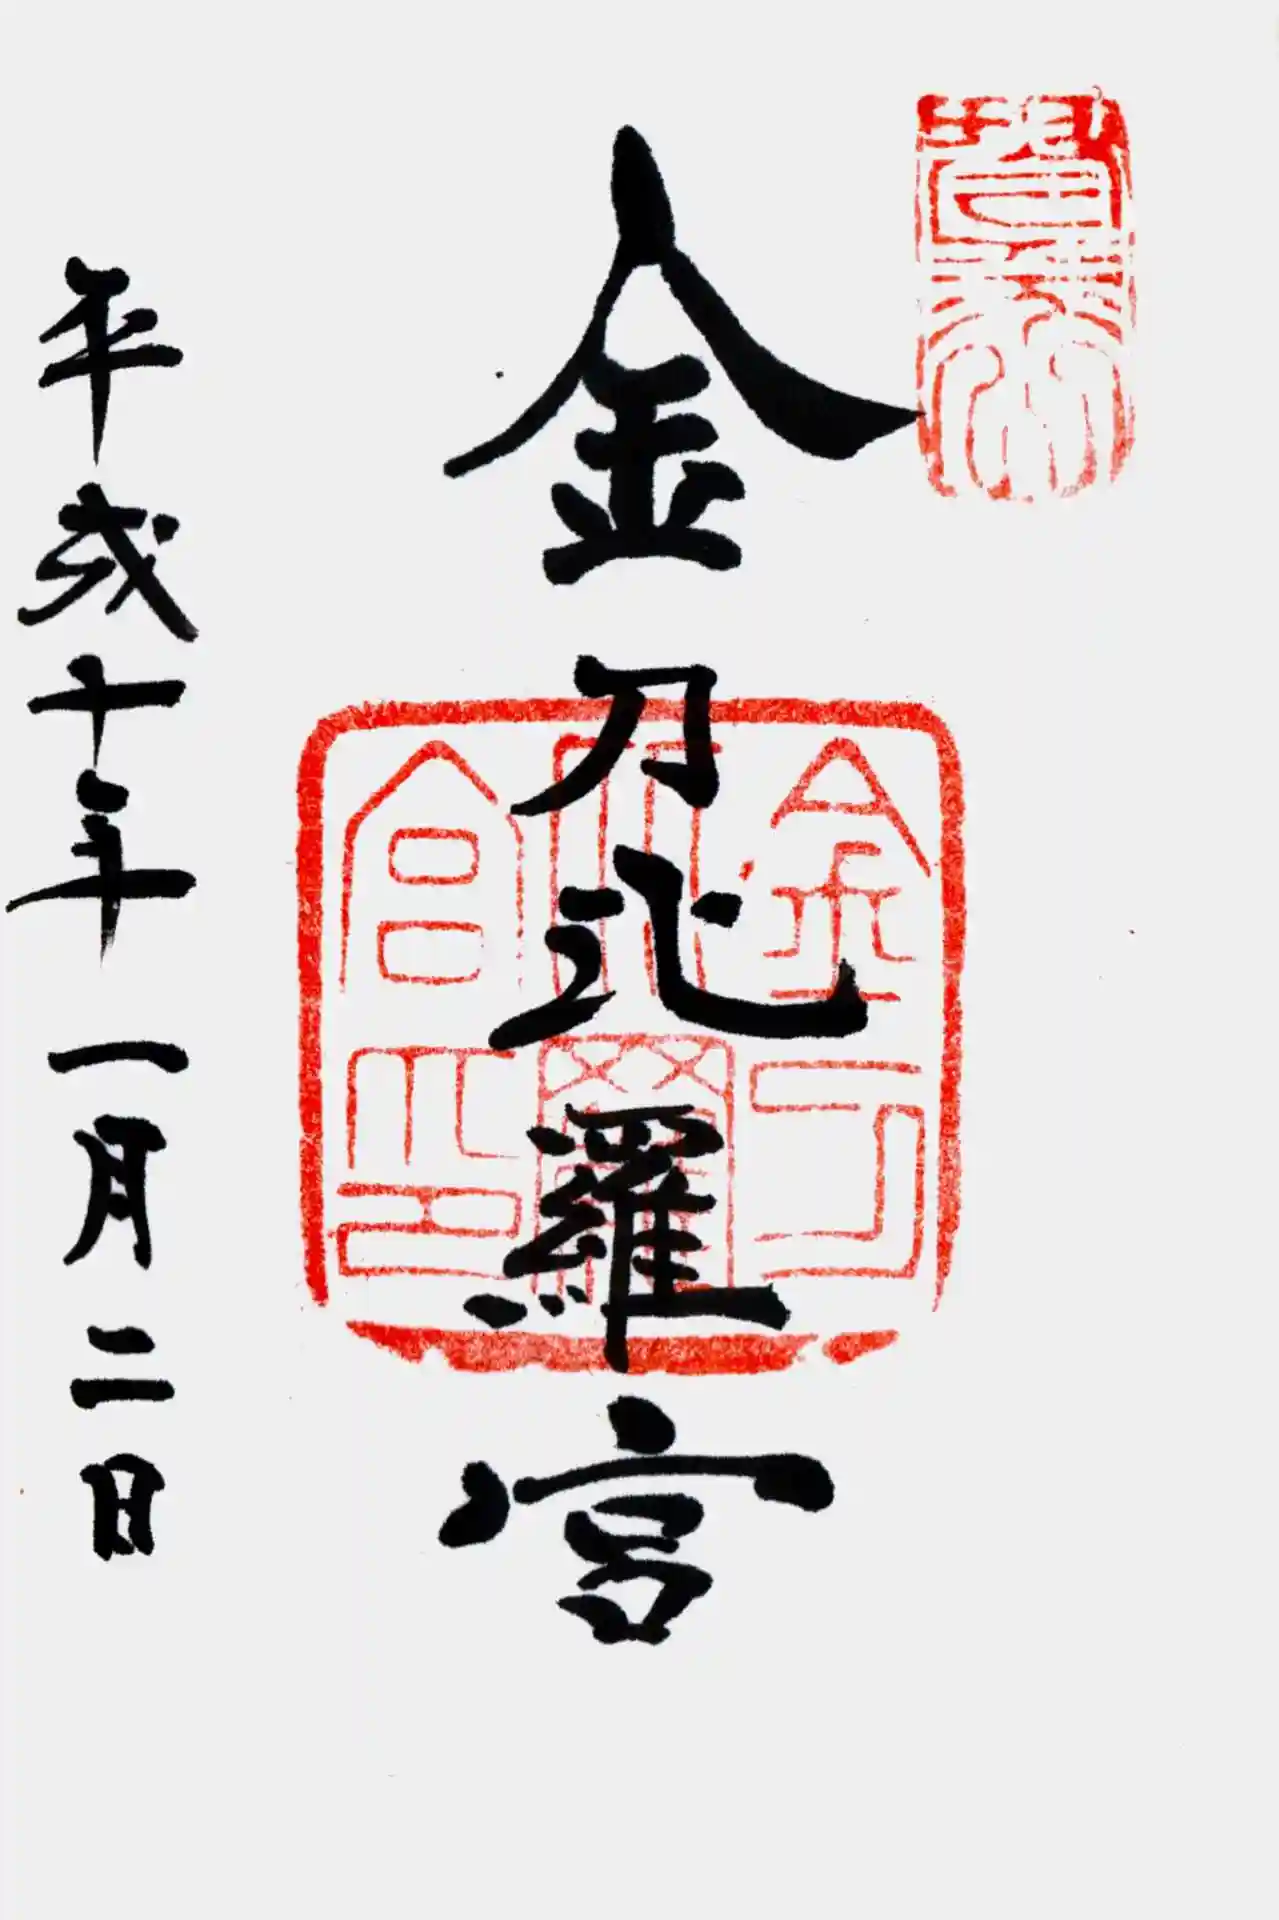 金刀比羅宮
金刀
比羅
宮印
平成十年一月二日